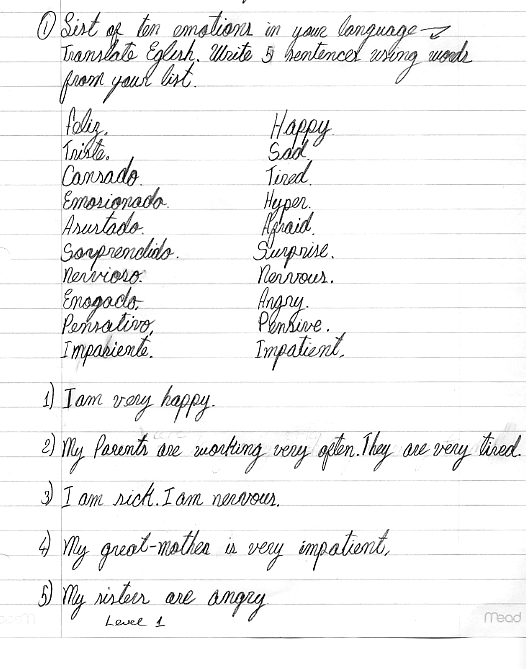 ① List of ten emotions in your language →
Translate Eglish. Write 5 sentences using words
from your list.
Feliz. Happy
Triste. Sad.
Cansado. Tired.
Emosionado. Hyper.
Asustado. Afraid.
Sorprendido. Surprise.
Nervioso. Nervous.
Enogado. Angry.
Pensativo, Pensive.
Impasiente. Impatient.
1) I am very happy.
2) My Parents are working very often. They are very tired.
3) I am sick. I am nervous.
4) My great-mother is very impatient.
5) My sisters are angry
Level 1
Mead